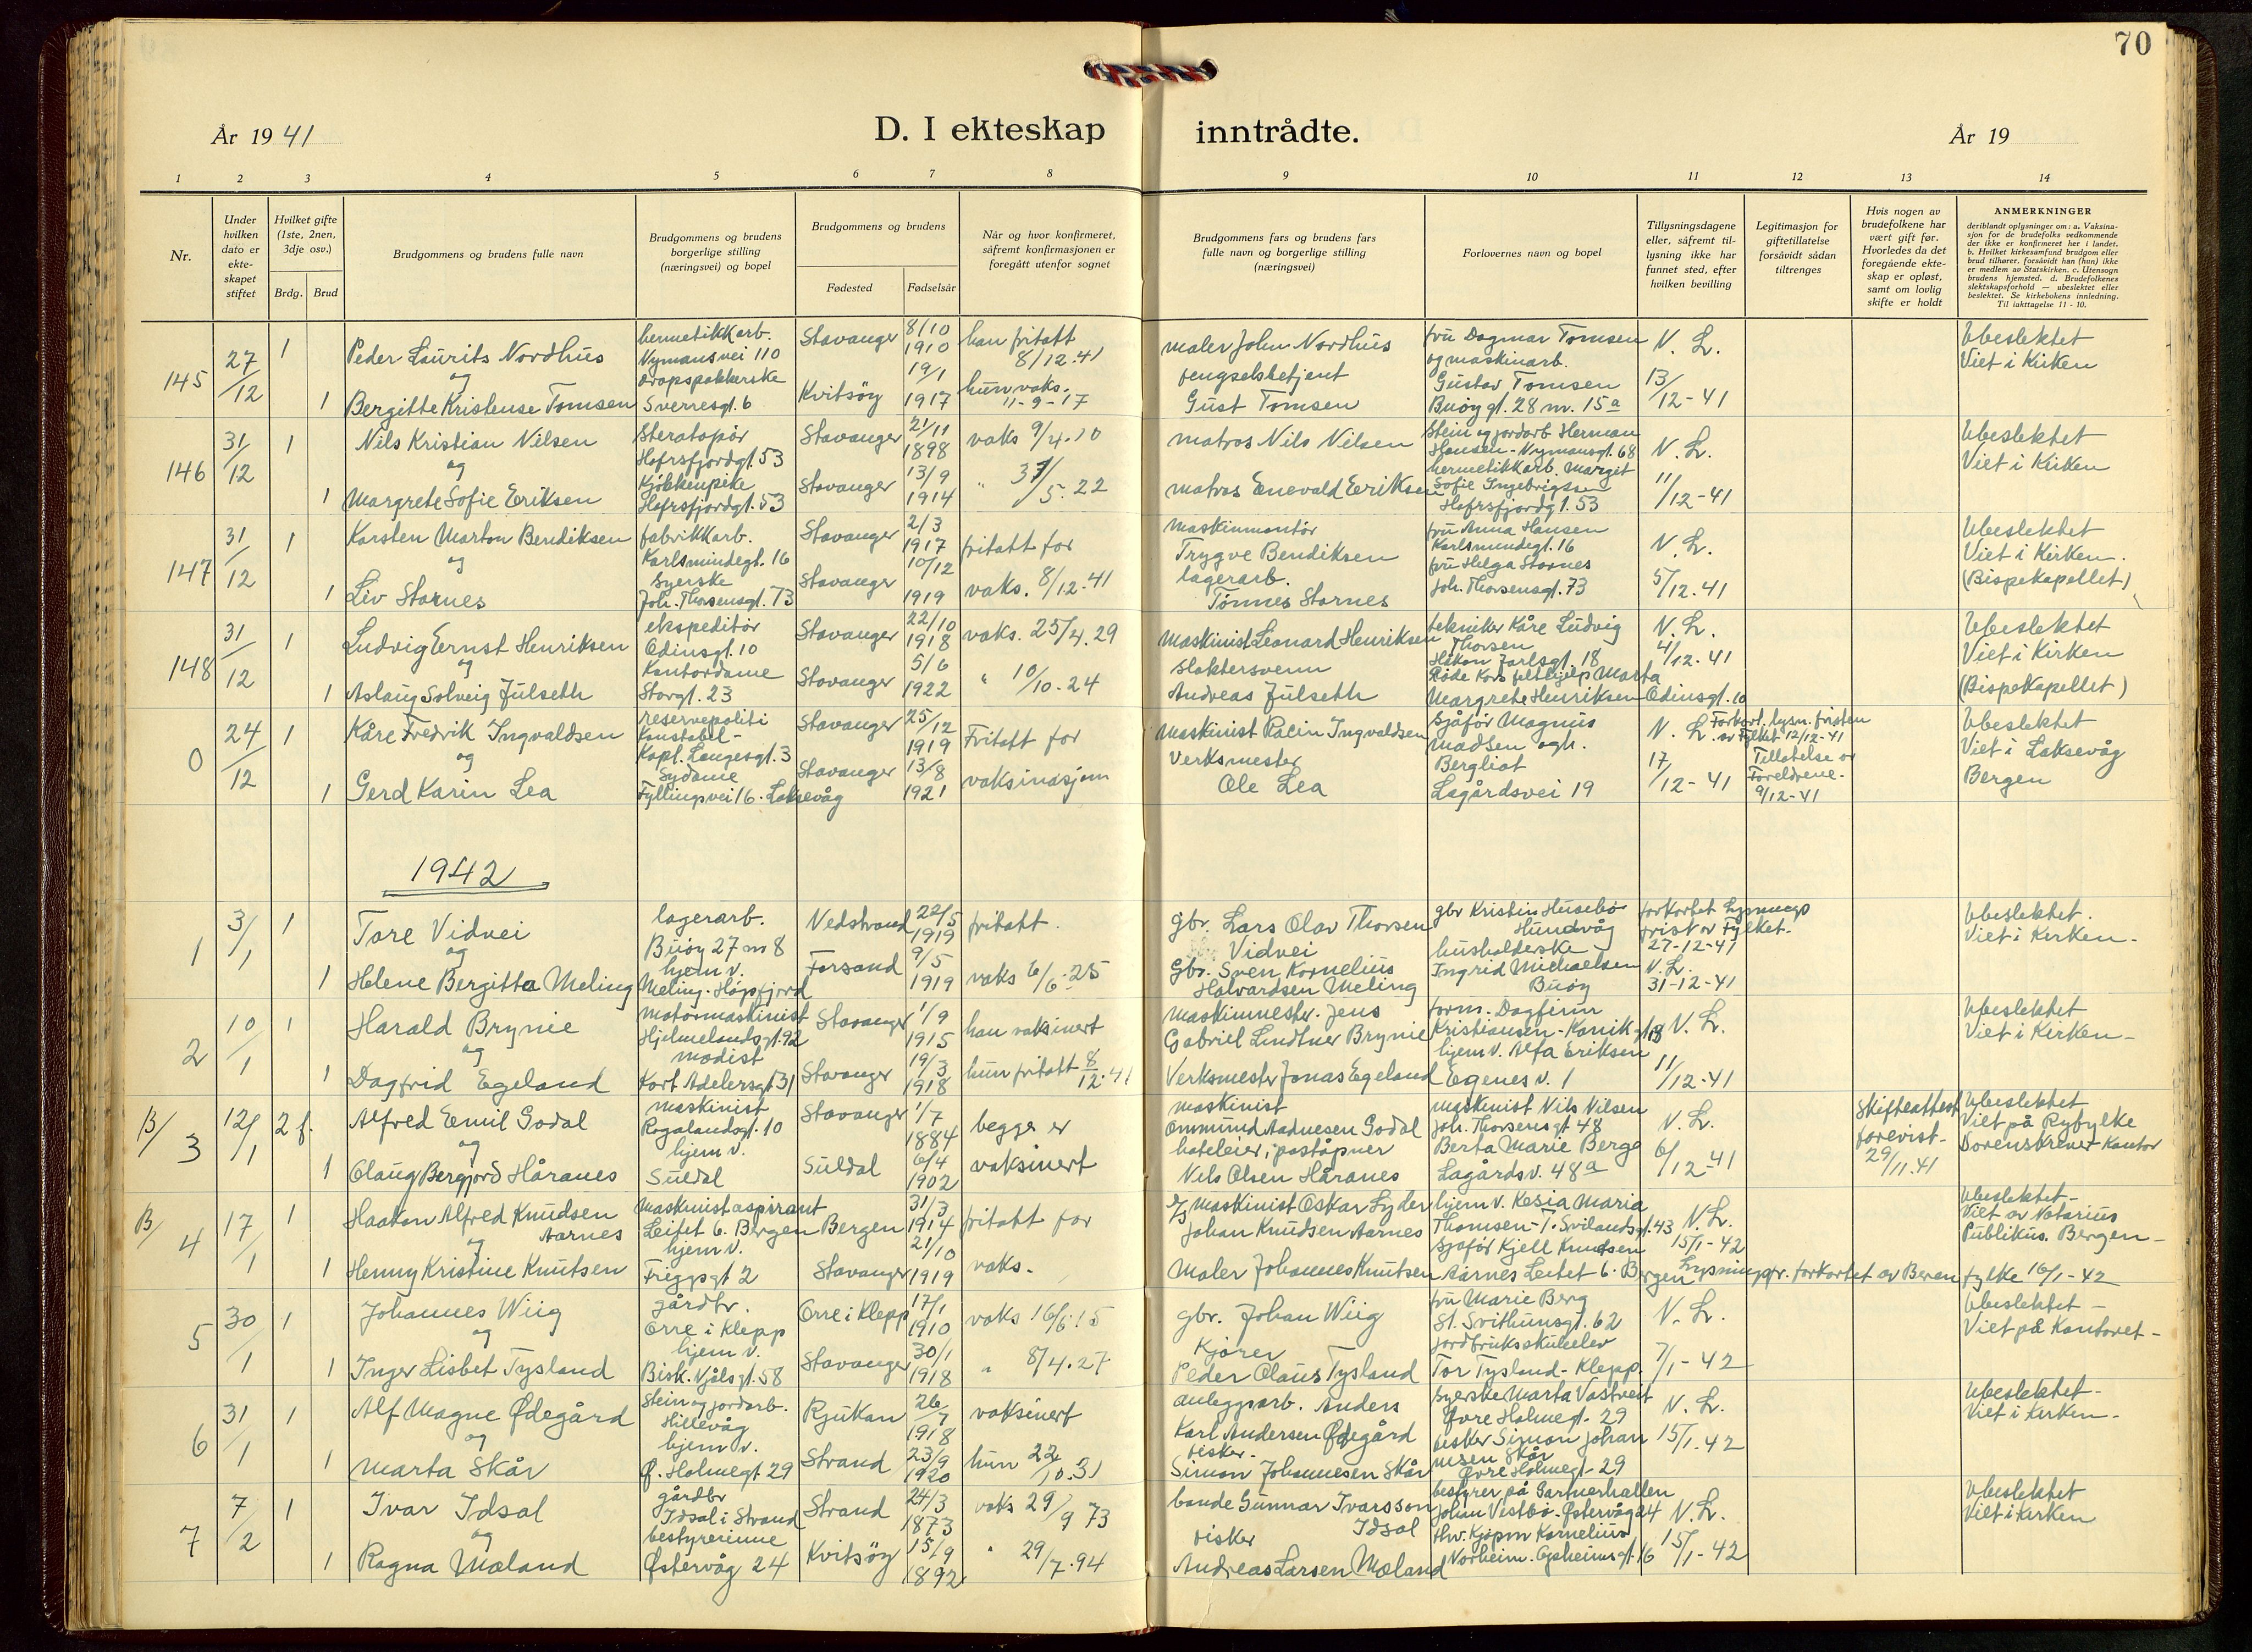 70
År 19 41
D. I ekteskap inntrådte.
År 19
1 2 3 4 5 6 7 8 9 10 11 12 13 14
Nr.
Under hvilken dato er ekteskapet stiftet
Hvilket gifte (1ste, 2nen, 3dje osv.)
Brdg. Brud
Brudgommens og brudens fulle navn
Brudgommens og brudens borgerlige stilling (næringsvei) og bopel
Brudgommens og brudens
Fødested
Fødselsår
Når og hvor konfirmeret, såfremt konfirmasjonen er foregått utenfor sognet
Brudgommens fars og brudens fars fulle navn og borgerlige stilling (næringsvei)
Forlovernes navn og bopel
Tillysningsdagene eller, såfremt tillysning ikke har funnet sted, efter hvilken bevilling
Legitimasjon for giftetillatelse forsåvidt sådan tiltrenges
Hvis nogen av brudefolkene har vært gift før. Hvorledes da det foregående ekteskap er opløst, samt om lovlig skifte er holdt
ANMERKNINGER
deriblandt oplysninger om: a. Vaksinasjon for de brudefolks vedkommende der ikke er konfirmeret her i landet. b. Hvilket kirkesamfund brudgom eller brud tilhører, forsåvidt han (hun) ikke er medlem av Statskirken. c. Utensogn brudens hjemsted. d. Brudefolkenes slektskapsforhold — ubeslektet eller beslektet. Se kirkebokens innledning. Til iakttagelse 11 - 10.
145 27/12 1 Peder Laurits Nordhus
og
1 Bergitte Kristense Tomsen
hermetikkarb.
Nymansvei 110
dropspakkerske
Sverresgt. 6
Stavanger 8/10 1910
Kvitsöy 19/1 1917
han fritatt
8/12.41
hun vaks.
11-9-17
maler John Nordhus
fengselsbetjent
Gust Tomsen
fru Dagmar Tomsen
og maskinarb.
Gustav Tomsen
Buöy gt. 28 m. 15a
N. L.
13/12-41
Ubeslektet
Viet i Kirken
146 31/12 1 Nils Kristian Nilsen
og
1 Margrete Sofie Eriksen
Hafrsfjordgt. 53
Kjökkenpike
Hafrsfjordgt. 53
Stavanger 21/11 1898
Stavanger 13/9 1914
vaks 9/4.10
" 31/5.22
matros Nils Nilsen
matros Enevald Eriksen
Stein og jordarb Herman
Hansen - Nymansgt. 68
hermetikkarb. Marget
Sofie Ingebrigtsen
Hafrsfjordgt. 53
N. L.
11/12-41
Ubeslektet
Viet i Kirken
147 31/12 1 Karsten Marton Bendiksen
og
1 Liv Stornes
fabrikkarb.
Karlsmindegt. 16
Syerske
Joh. Thorsensgt. 73
Stavanger 2/3 1917
Stavanger 10/12 1919
fritatt for
vaks. 8/12.41
Maskinmontör
Trygve Bendiksen
lagerarb.
Tönnes Stornes
fru Anna Hansen
Karlsmindegt. 16
fru Helga Stornes
Joh. Thorsensgt. 73
N. L.
5/12.41
Ubeslektet
Viet i Kirken.
(Bispekapellet)
148 31/12 1 Ludvig Ernst Henriksen
og
1 Aslaug Solveig Julseth
ekspeditör
Odinsgt. 10
Kontordame
Storgt. 23
Stavanger 22/10 1918
Stavanger 5/6 1922
vaks. 25/4.29
" 10/10.24
Maskinist Leonard Henriksen
slaktersvenn
Andreas Julseth
tekniker Kåre Ludvig
Thorsen
Håkon Jarlsgt. 18
Röde Kors felthjelp Marta
Margrete Henriksen Odinsgt. 10
N. L.
4/12.41
Ubeslektet
Viet i Kirken
(Bispekapellet)
0 24/12 1 Kåre Fredrik Ingvaldsen
og
1 Gerd Karin Lea
reservepoliti
Konstabel-
Kapt. Langesgt. 3
Sydame
Fyllingsvei 16. Laksevåg
Stavanger 25/12 1919
Stavanger 13/8 1921
Fritatt for
vaksinasjon
maskinist Racin Ingvaldsen
Verksmester
Ole Lea
Sjåför Magnus
Madsen og h.
Bergliot
Lagårdsvei 19
N. L.
17/12-41
Forkort. lysn. fristen
av Fylket 12/12-41
Tillatelse av
Foreldrene.
9/12-41
Ubeslektet
Viet i Laksevåg
Bergen
1942
1 3/1 1 Tore Vidvei
og
1 Helene Bergitta Meling
lagerarb.
Buöy 27 m 8
hjem v.
Meling. Högsfjord
Nedstrand 22/5 1919
Forsand 9/5 1919
fritatt.
vaks 6/6.25
gbr. Lars Olav Thorsen
Vidvei
Gbr. Sven Kornelius
Halvardsen Meling
gbr Kristin Husebö
Hundvåg
husholderske
Ingrid Michaelsen
Buöy
forkortet Lysnings
frist av Fylket.
27-12-41
N. L.
31-12-41
Ubeslektet.
Viet i Kirken.
2 10/1 1 Harald Brynie
og
1 Dagfrid Egeland
motormaskinist
Hjelmelandsgt. 92
modist
Kort Adelersgt 31
Stavanger 1/9 1915
Stavanger 19/3 1918
han vaksinert
hun fritatt 8/12.41
maskinmester. Jens
Gabriel Lindtner Brynie
Verksmester Jonas Egeland
form. Dagfinn
Kristiansen - Kanikgt 18
hjem v. Alfa Eriksen
Egenes v. 1
N. L.
11/12.41
Ubeslektet
Viet i Kirken
B/3 12/1 2 f. Alfred Emil Godal
og
1 Olaug Bergjord Håranes
maskinist
Rogalandsgt. 10
hjem v.
Suldal
Stavanger 1/7 1884
Suldal 6/4 1902
begge er
vaksinert
maskinist
Ommund Aadnesen Godal
hoteleier, poståpner
Nils Olsen Håranes
maskinist Nils Nilsen
Joh. Thorsensgt 48
Berta Marie Berge
Lagårdsv. 48a
N. L.
6/12-41
Skifteattest
forevist.
29/11.41
Ubeslektet
Viet på Ryfylke
Sorenskriver Kontor
B/4 17/1 1 Haakon Alfred Knudsen
og Aarnes
1 Henny Kristine Knutsen
Maskinistaspirant
Leitet 6. Bergen
hjem v.
Friggsgt 2
Bergen 31/3 1914
Stavanger 21/10 1919
fritatt for
vaks.
maskinist Oskar Lyder
Johan Knudsen Aarnes
Maler Johannes Knutsen
hjem v. Kesia Maria
Thomsen - T. Svilandsgt. 43
Sjåför Kjell Knudsen
Aarnes Leitet 6. Bergen
N. L.
15/1-42
Lysningsfr. forkortet av Bergen fylke 16/1-42
Ubeslektet
Viet av Notarius
Publikus. Bergen
5 30/1 1 Johannes Wiig
og
1 Inger Lisbet Tysland
gårdbr.
Orre i Klepp
hjem v.
Bisk. Njålsgt. 58
Orre i Klepp 17/1 1910
Stavanger 30/1 1918
vaks 16/6.15
" 8/4.27
gbr. Johan Wiig
Kjörer
Peder Olaus Tysland
fru Marie Berg
St. Svithunsgt. 62
jordbruksskuleelev
Tor Tysland - Klepp.
N. L.
7/1-42
Ubeslektet
Viet på Kontoret
6 31/1 1 Alf Magne Ødegård
og
1 Marta Skår
Stein og jordarb.
Hillevåg
hjem v.
Ø. Holmegt 29
Rjukan 26/7 1918
Strand 23/9 1920
vaksinert
hun 22/10.31
anleggsarb. Anders
Karl Andersen Ødegård
fisker.
Simon Johannesen Skår
Syerske Marta Vastveit
Øvre Holmegt. 29
fisker Simon Johan
nesen Skår
Øvre Holmegt. 29
N. L.
15/1.42
Ubeslektet
Viet i Kirken
7 7/2 1 Ivar Idsal
og
1 Ragna Mæland
gårdbr
Idsal i Strand
bestyrerinne
Østervåg 24
Strand 24/3 1873
Kvitsöy 15/9 1892
vaks 29/9 73
" 29/7.94
bonde Gunnar Ivarsson
Idsal
fisker
Andreas Larsen Mæland
bestyrer på Gartnerhallen
Johan Vestbö. Østervåg 24
Hw. Kjöpm Kornelius
Norheim. Ogsheimsgt. 16
N. L.
15/1-42
Ubeslektet
Viet i Kirken